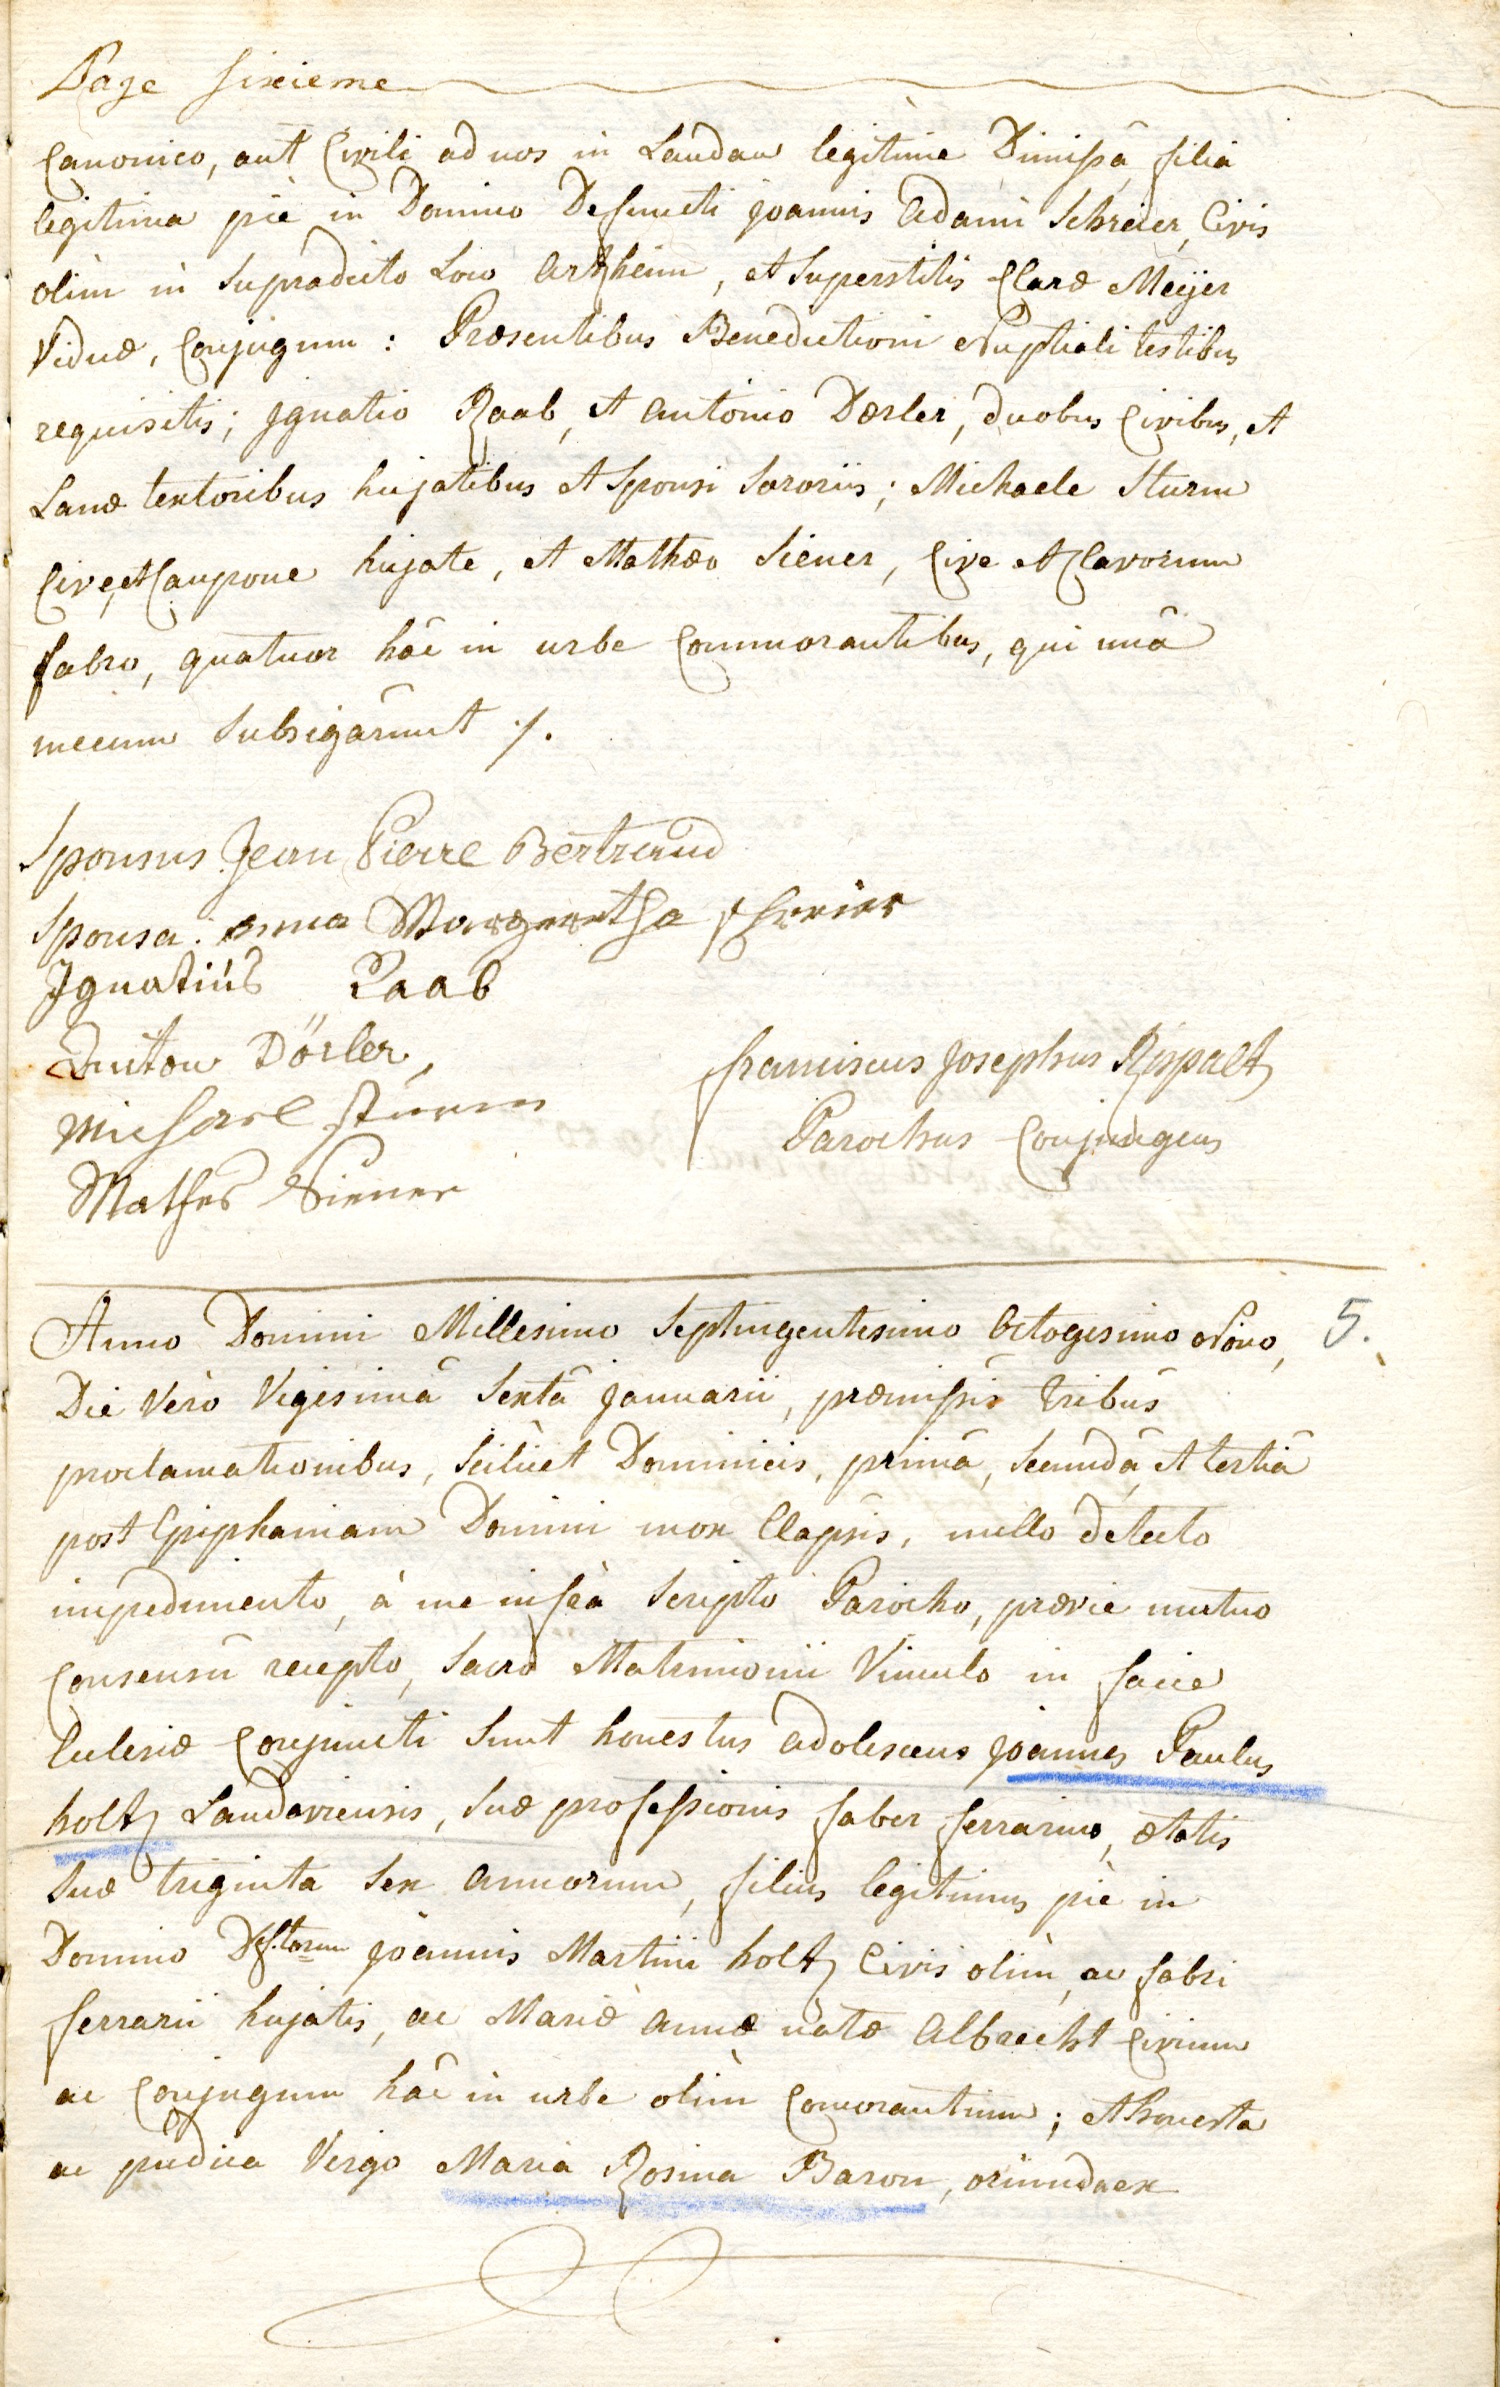 Page sixieme
Canonico, aut Civili ad nos in Landau legitimè Dimissâ, filiâ
legitima piè in Domino Defuncti joannis adami Schreier, Civis
olìm in supradicto Loco Arzheim, et Superstitis Claræ Meÿer
Viduæ, Conjugum : Præsentibus Benedictioni Nuptiali testibus
requisitis; jgnatio Raab, et antonio Dœrler, duobus Civibus, et
Lanæ textoribus hujatibus et Sponsi Sororiis; Michaele Sturm
Cive, et Caupone hujate, et Mathæo Siener, Cive et Clavorum
fabro, quatuor hâc in urbe Commorantibus, qui unâ
mecum Subsigârunt ./.
Sponsus Jean Pierre Bertrand
Sponsa: anna Margaretha schreier
Ignatius Raab
Anton Dörler,
Michael sturm
Mathes Siener
franciscus josephus Rippelt
Parochus Conjungens
Anno Domini Millesimo Septingentesimo Octogesimo Nono, 5.
Die Verò Vigesimâ Sextâ januarii, præmissis tribus
proclamationibus, Scilicet Dominicis, primâ, Secundâ, et tertiâ
post Epiphaniam Domini mox Elapsis, nullo detecto
impedimento, à me infrà Scripto Parocho, prævie mutuo
Consensu recepto, Sacro Matrimonii Vinculo in facie
Ecclesiæ Conjuncti Sunt honestus adolescens joannes Paulus
holtz Landaviensis, Suæ professionis faber ferrarius, ætatis
Suæ triginta Sex annorum, filius legitimus piè in
Domino Def.torum joannis Martini holtz Civis olìm, ac fabri
ferrarii hujatis, ac Mariæ annæ natæ Albrecht Civium
ac Conjugum hâc in urbe olìm Comorantium; et honesta
ac pudica Virgo Maria Rosina Baron, oriunda ex